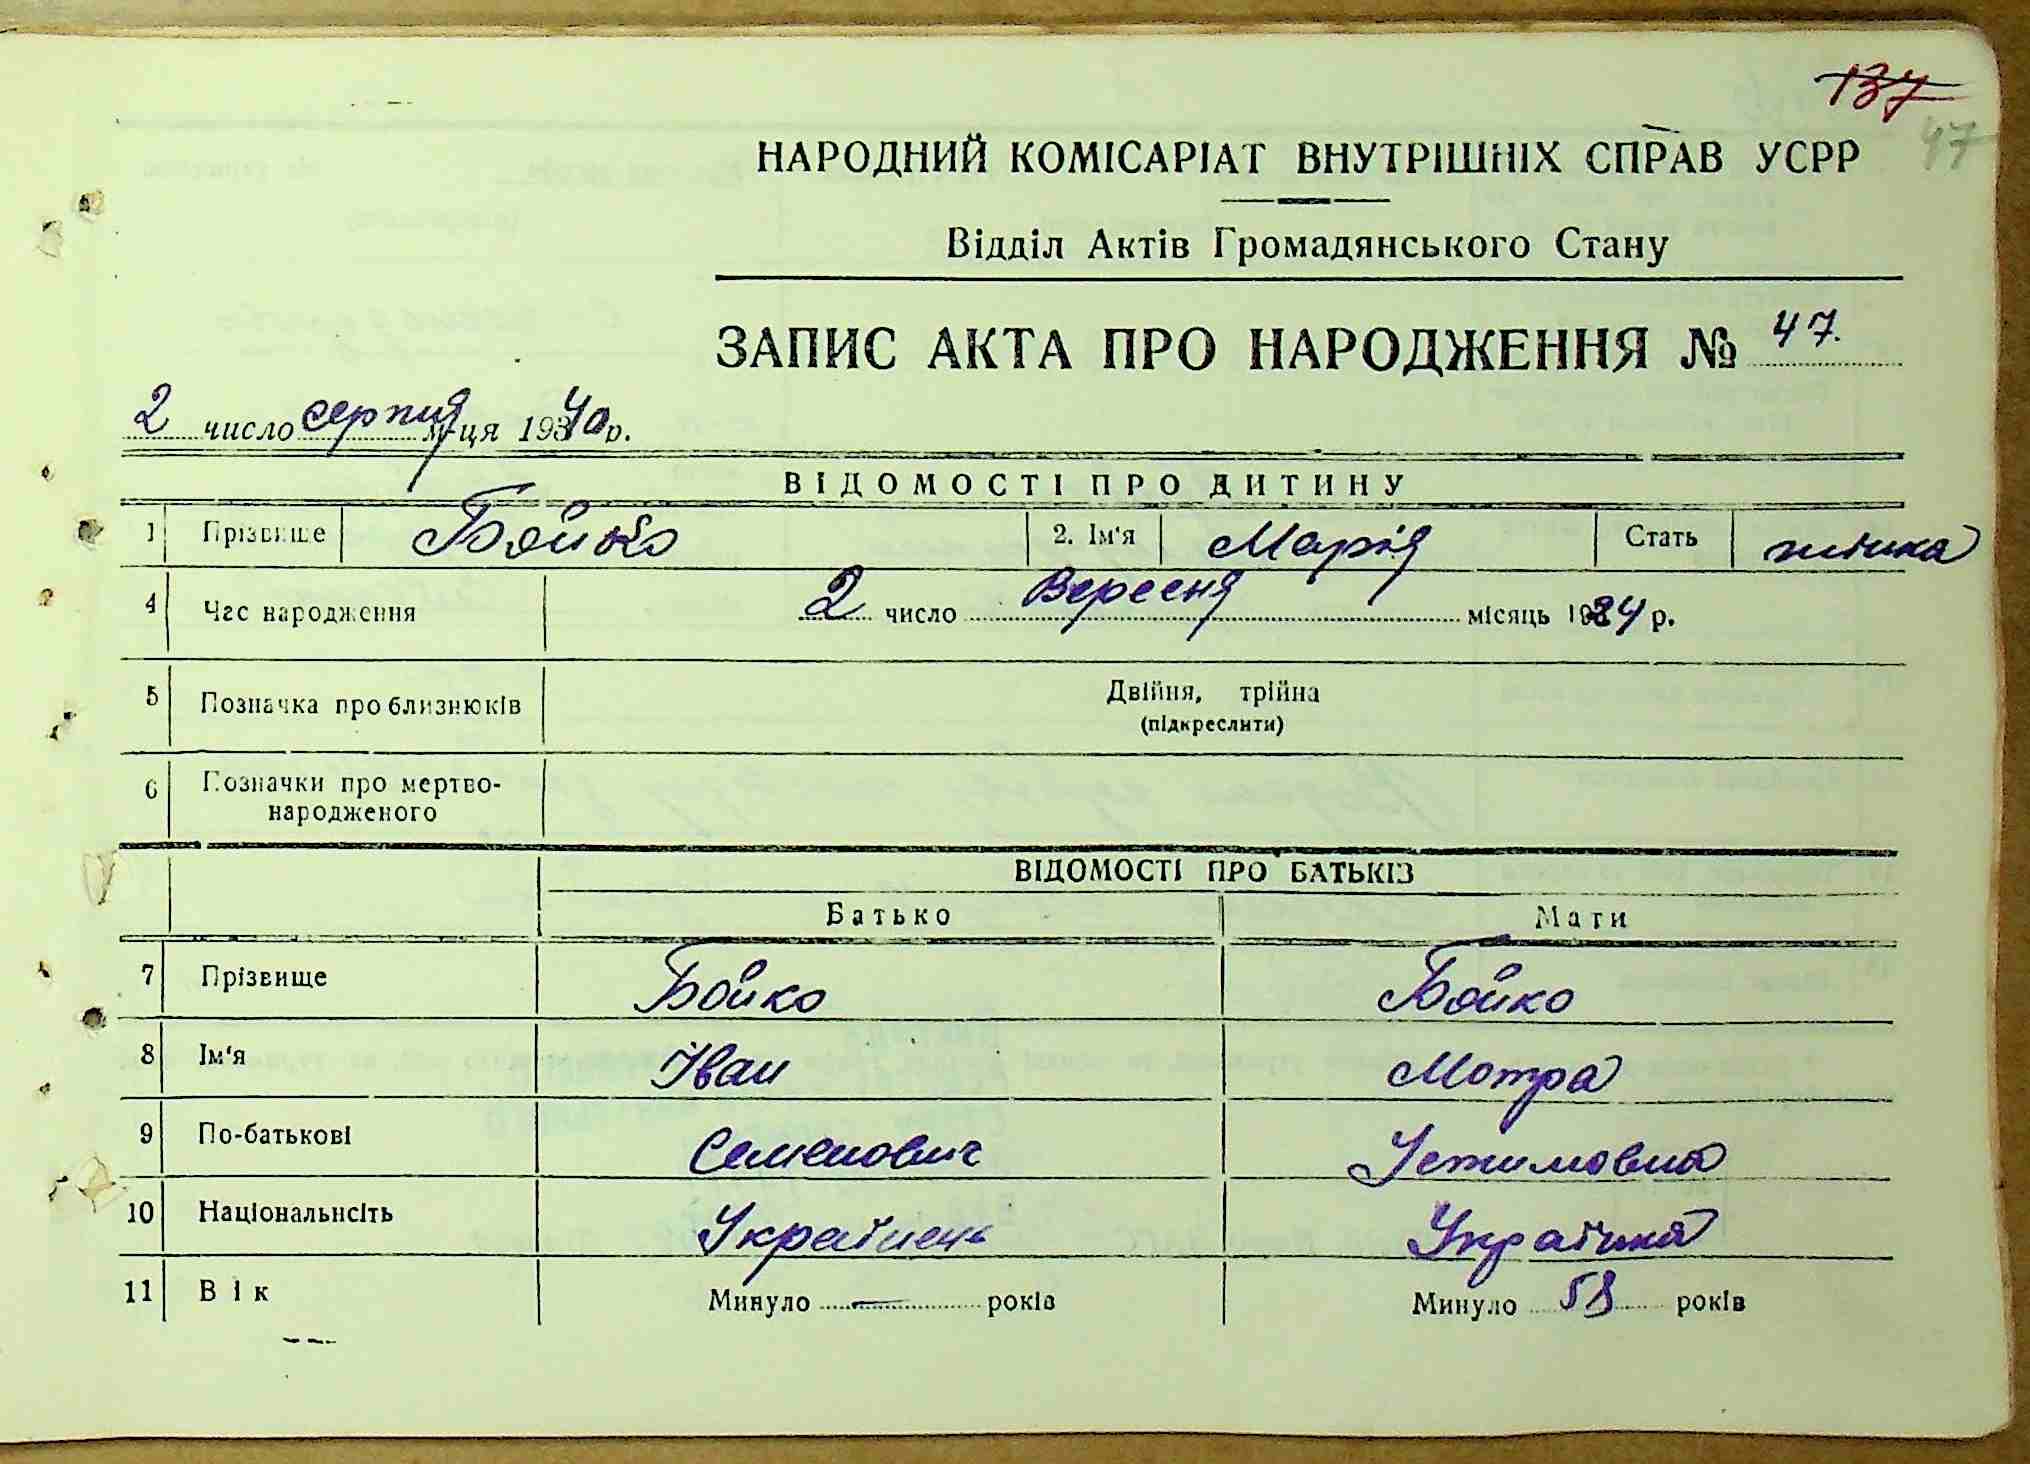 137
47
НАРОДНИЙ КОМІСАРІАТ ВНУТРІШНІХ СПРАВ УСРР
Відділ Актів Громадянського Стану
ЗАПИС АКТА ПРО НАРОДЖЕННЯ № 47.
2 число серпня м-ця 1940 р.
ВІДОМОСТІ ПРО ДИТИНУ
1 Прізвище Бойко 2. Ім'я Марія Стать жінка
4 Час народження 2 число Вересня місяць 1924 р.
5 Позначка про близнюків Двійня, трійна
(підкреслити)
6 Позначки про мертво-
народженого
ВІДОМОСТІ ПРО БАТЬКІВ
Батько Мати
7 Прізвище Бойко Бойко
8 Ім'я Іван Мотра
9 По-батькові Семенович Устимовна
10 Національнсіть Українець Українка
11 Вік Минуло — років Минуло 58 років